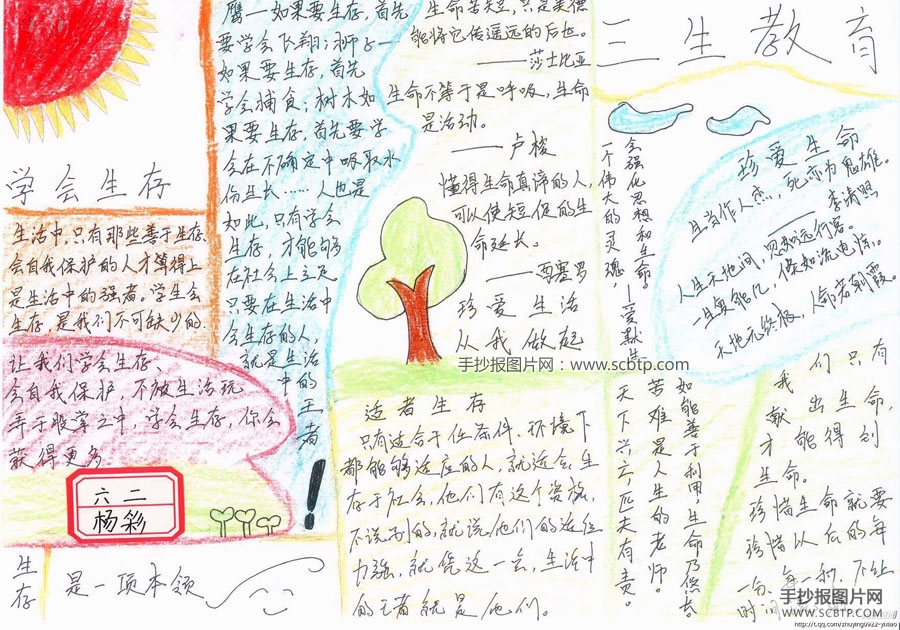 三生教育
学会生存
生活中，只有那些善于生存、
会自我保护的人才算得上
是生活中的强者。学生会
生存，是我们不可缺少的.
让我们学会生存、
会自我保护，不被生活玩
弄于股掌之中，学会生存，你会
获得更多
六二
杨彩
生存
是一项本领
鹰一如果要生存，首先
要学会飞翔；狮子一
如果要生存，首先
学会捕食；树木如
果要生存，首先要学
会在不确定中吸取水
份生长……人也是
如此，只有学会
生存，才能够
在社会上立足
只要在生活中
会生存的人，
就是生活
中的
王者！
生命苦短，只是美德
能将它传遥远的后世。
——莎士比亚
生命不等于是呼吸，生命
是活动。
——卢梭
懂得生命真谛的人，
可以使短促的生
命延长。
——西塞罗
珍爱生活
从我做起
手抄报图片网：www.scbtp.com
适者生存
只有适合于任条件、环境下
都能够适应的人，就适合生
存于社会，他们有这个资放，
不说别的，就说他们的适位
力强，就凭这一会，生活中
的王者就是他们。
一个伟大的灵魂，
会强化思想和生命。—爱默生
珍爱生命
生当作人杰，死亦为鬼雄。
——李清照
人生天地间，忽如远行客。
一生复能几，倏如流电惊。
天地无终极，人命若朝霞。
如能善于利用生命乃悠长。
苦难是人生的老师。
天下兴亡匹夫有责。
我们只有
献出生命，
才能得到
生命。
珍惜生命就要
珍惜以后的每
一分、每一秒，不让
时间
手抄报图片网
www.scbtp.com
http://t.qq.com/zhuying0922-yutao